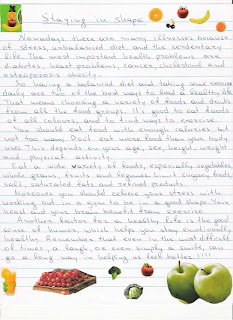 Staying in Shape
Nowadays there are many illnesses because
of stress, unbalanced diet and the sendentary
life. The most important health problems are
diabetes, heart problems, cancer, cholesterol and
osteoporosis obesity.
So having a balanced diet and taking some exercise
daily are two of the best ways to lead a healthy life.
That means choosing a variety of foods and drinks
from all the food groups. It's good to eat foods
of all colours, and to find ways to exercise.
You should eat food with enough calories, but
not too many. Don't eat more food than your body
uses. This depends on your age, sex, height, weight
and physical activity.
Eat a wide variety of foods, especially vegetables
whole grains, fruits and legumes. Limit sugary foods,
salt, saturated fats and refined products.
Moreover you should relieve your stress with
working out in a gym to be in a good shape. Your
head and your brain benefit from exercise.
Another factor for a healthy life is the good
sense of humor, which helps you stay emotionally
healthy. Remember that even in the most difficult
of times, a laugh, or even simply a smile, can
go a long way in helping us feel better.!!!!